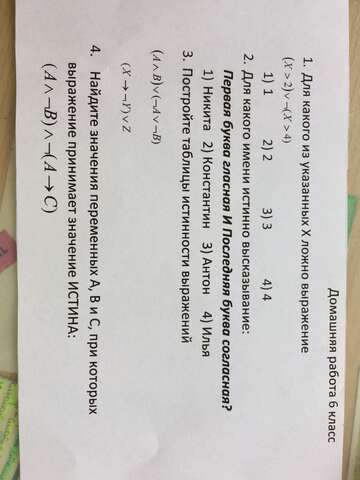 Домашняя работа 6 класс
1. Для какого из указанных X ложно выражение
(X > 2) ∨ ¬(X > 4)
1) 1 2) 2 3) 3 4) 4
2. Для какого имени истинно высказывание:
Первая буква гласная И Последняя буква согласная?
1) Никита 2) Константин 3) Антон 4) Илья
3. Постройте таблицы истинности выражений
(A ∧ B) ∨ (¬A ∨ ¬B)
(X → ¬Y) ∨ Z
4. Найдите значения переменных A, B и C, при которых
выражение принимает значение ИСТИНА:
(A ∧ ¬B) ∧ ¬(A → C)